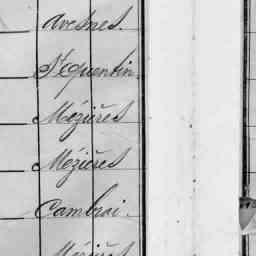 Avesnes.
St Quentin
Mézières
Mézières
Cambrai.
Mézières